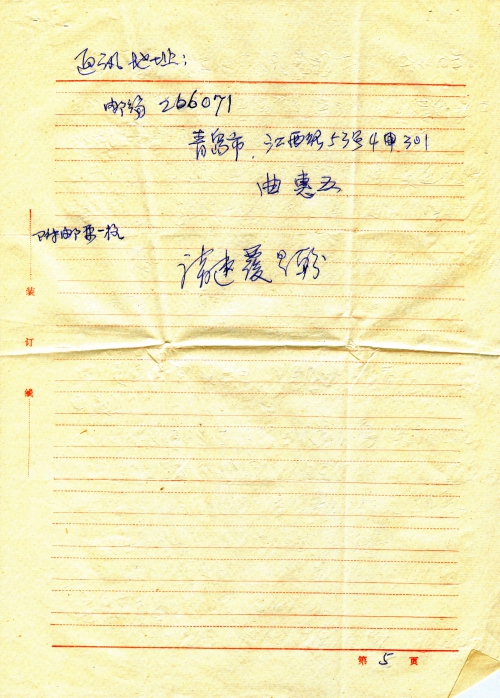 通讯地址：
邮编 266071
青岛市，江西路53号4单301
曲惠五
附邮票一枚
请速覆是盼
装
订
线
第 5 页